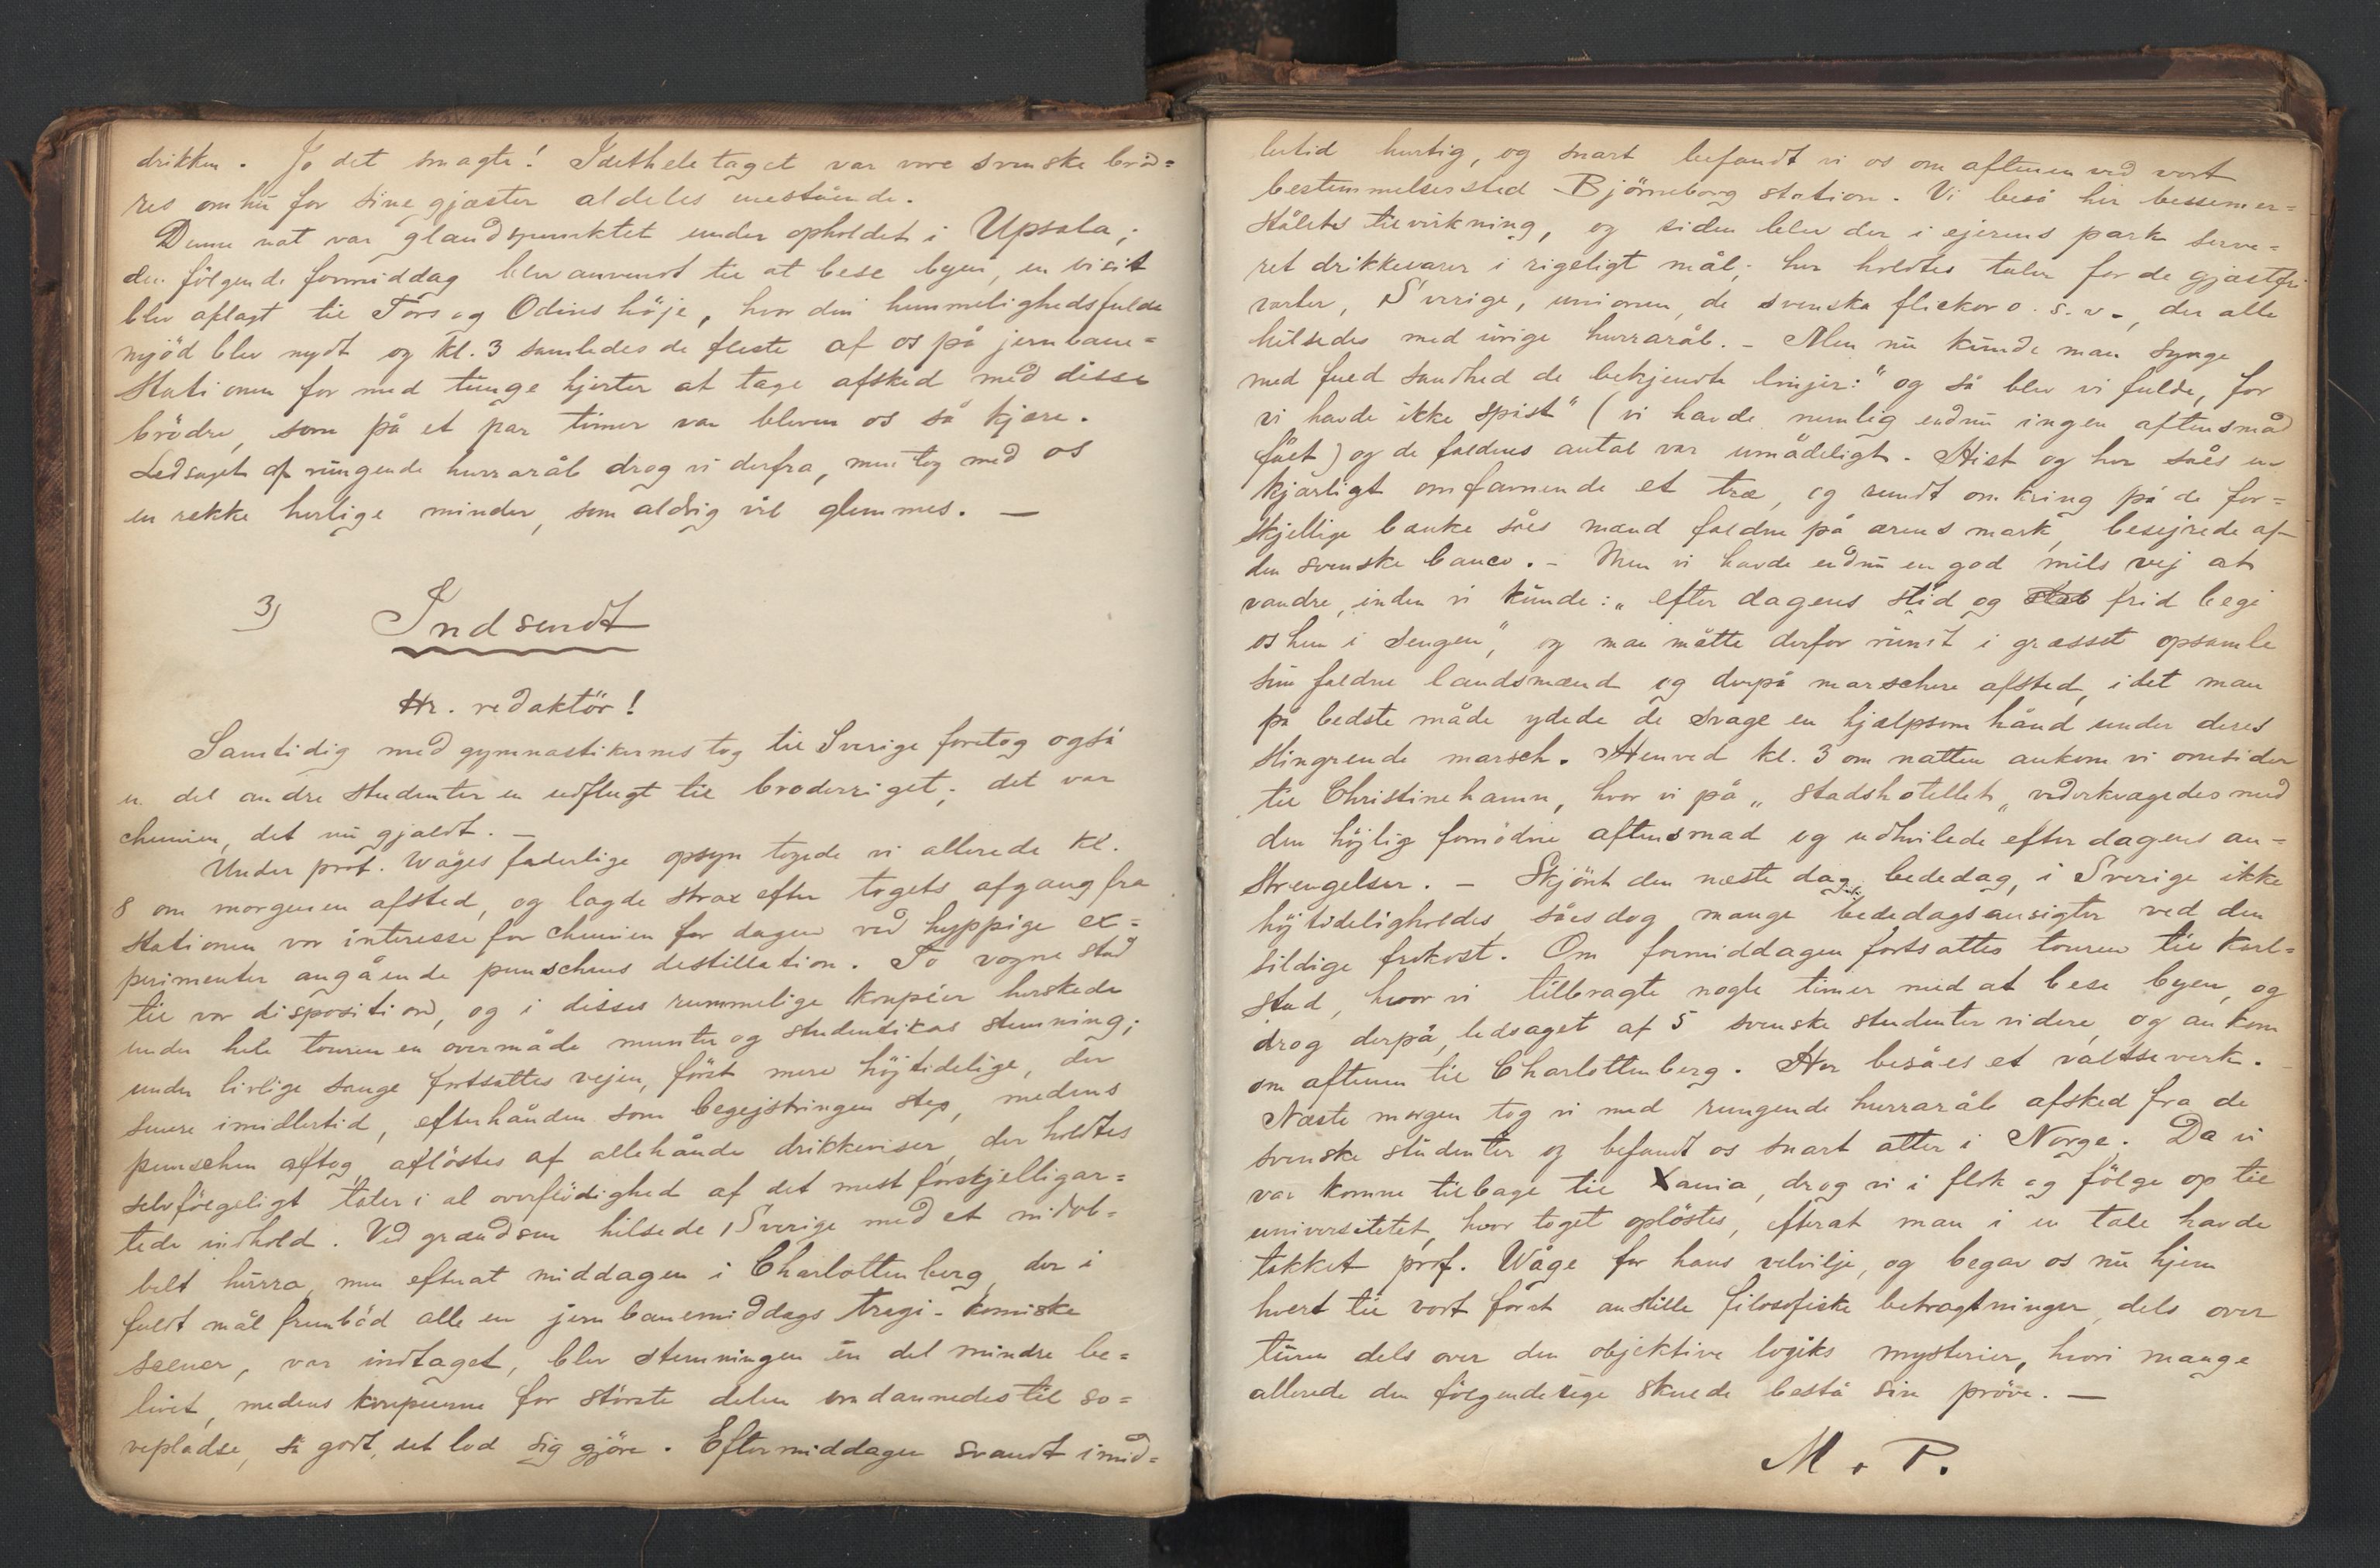 drikken. Jo det smagte! Idethele taget var vore svenske brød=
res omhu for sine gjæster aldeles enestående.
Denne nat var glandspunktet under opholdet i Upsala;
den følgende formiddag blev anvendt til at bese byen, en visit
blev aflagt til Tors og Odins höje, hvor den hemmelighedsfulde
mjöd blev nydt og kl. 3 samledes de fleste af os på jernbane=
stationen for med tunge hjerter at tage afsked med disse
brödre, som på et par timer var bleven os så kjære.
Ledsaget af rungende hurraråb drog vi derfra, men tog med os
en rekke herlige minder, som aldrig vil glemmes. —
3) Indsendt
Hr. redaktör!
Samtidig med gymnastikernes tog til Sverige foretog også
en del andre studenter en udflugt til broderriget; det var
chemien, det nu gjaldt. —
Under prof. Wåges faderlige opsyn togede vi allerede kl.
8 om morgenen afsted, og lagde strax efter togets afgang fra
stationen vor interesse for chemien for dagen ved hyppige ex=
perimenter angående punschens destillation. To vogne stod
til vor disposition, og i disses rummelige koupéer herskede
under hele touren en overmåde munter og studentikos stemning;
under livlige sange fortsattes vejen, først mere höjtidelige, der
senere imidlertid, efterhånden som begejstringen steg, medens
punschen aftog, aflöstes af allehånde drikkeviser, der holdtes
selvfölgeligt taler i al overflödighed af det mest forskjelligar=
tede indhold. Ved grændsen hilsede Sverige med et nidob=
belt hurra, men efterat middagen i Charlottenberg, der i
fuldt mål frembød alle en jernbanemiddags tragi-komiske
scener, var indtaget, blev stemningen en del mindre be=
livet, medens koupeerne for störste delen omdannedes til so=
vepladse, så godt, det lod sig gjöre. Eftermiddagen svandt imid=
lertid hurtig, og snart befandt vi os om aftenen ved vort
bestemmelsessted Björneborg station. Vi beså her bessemer=
stålets tilvirkning, og siden blev der i ejerens park serve=
ret drikkevarer i rigeligt mål; her holdtes taler for de gjæstfri
værter, Sverige, unionen, de svenska flickor o.s.v., der alle
hilsedes med ivrige hurraråb. – Men nu kunde man synge
med fuld sandhed de bekjendte linjer: "og så blev vi fulde, for
vi havde ikke spist" (vi havde nemlig endnu ingen aftensmåd
fået) og de faldnes antal var umådeligt. Hist og her såes en
kjærligt omfavnende et træ, og rundt omkring på de for=
skjellige bænke såes mænd faldne på ærens mark, besejrede af
den svenske banco. – Men vi havde endnu en god mils vej at
vandre, inden vi kunde: "efter dagens stid og frid begi
os hen i sengen", og man måtte derfor rundt i græsset opsamle
sine faldne landsmænd og derpå marschere afsted, idet man
på bedste måde ydede de svage en hjælpsom hånd under deres
slingrende marsch. Henved kl. 3 om natten ankom vi omsider
til Christinehamn, hvor vi på "stadshotellet" vederkvægedes med
den höjlig fornödne aftensmad og udhvilede efter dagens an=
strengelser. – Skjönt den næste dag, bededag, i Sverige ikke
höjtideligholdes, såes dog mange bededagsansigter ved den
sildige frokost. Om formiddagen fortsattes touren til Karl=
stad, hvor vi tilbragte nogle timer med at bese byen, og
drog derpå, ledsaget af 5 svenske studenter videre, og ankom
om aftenen til Charlottenberg. Her besåes et valtseverk.
Næste morgen tog vi med rungende hurraråb afsked fra de
svenske studenter og befandt os snart atter i Norge. Da vi
var komne tilbage til Xania, drog vi i flok og fölge op til
universitetet, hvor toget oplöstes, efterat man i en tale havde
takket prof. Wåge for hans velvilje, og begav os nu hjem
hvert til vort for at anstille filosofiske betragtninger, dels over
turen dels over den objektive logiks mysterier, hvori mange
allerede den fölgende uge skulde bestå sin pröve. —
M. P.